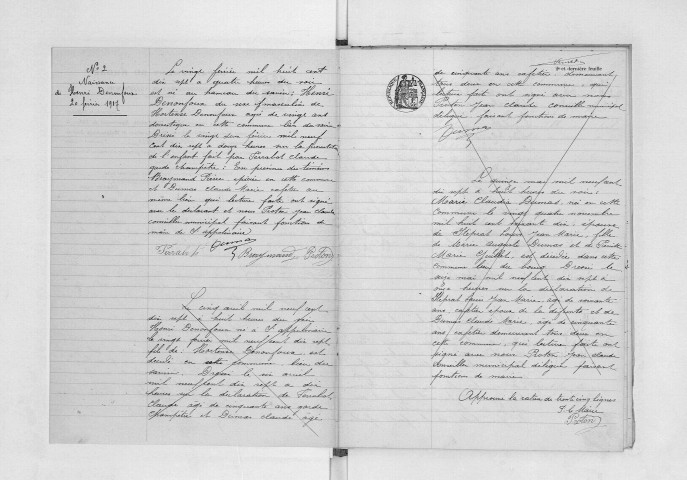 N° 2
Naissance
de Henri Denonfoux
20 février 1917
Le vingt février mil huit cent
dix sept à quatre heures du soir
est né au hameau de : Henri
Denonfoux du sexe masculin de
Hortense Denonfoux agée de vingt ans
domestique en cette commune lieu du
Dressé le vingt deux février mil neuf
cent dix sept à douze heures sur la présentation
de l'enfant fait par Terrabol claude
garde champêtre : En présence des témoins
Burgmand Pierre épicier en cette commune
et Dumas Claude Marie cafetier au
même lieu qui lecture faite ont signé
avec le déclarant et nous Proton Jean claude
conseiller municipal faisant fonction de
maire de St appolinaire
Dumas
Terrabol Burgmand Proton
Le cinq avril mil neuf cent
dix sept à huit heures du soir
Henri Denonfoux né à St appolinaire
le vingt février mil neuf cent dix sept
fils de Hortense Denonfoux est
décédé en cette commune lieu du
Dressé le six avril
mil neuf cent dix sept à dix
heures sur la déclaration de Terrabol
claude âgé de cinquante ans garde
champêtre et Dumas claude âgé
9e et dernière feuille
de cinquante ans cafetier domiciliés
tous deux en cette commune qui
lecture faite ont signé avec nous
Proton Jean claude conseiller municipal
délégué faisant fonction de maire
Dumas
Le quinze mai mil neuf cent
dix sept à huit heures du soir :
Marie Claudia Dumas, née en cette
commune le vingt quatre novembre
mil huit cent soixante dix, épouse
de Jean Marie, fille
de Pierre Auguste Dumas et de
Marie, est décédée dans cette
commune lieu du bourg Dressé le
seize mai mil neuf cent dix sept à
onze heures sur la déclaration de
Jean Marie âgé de soixante
ans, cafetier époux de la défunte et de
Dumas claude Marie âgé de cinquante
ans, cafetier demeurant tous deux en
cette commune, qui lecture faite ont
signé avec nous Proton Jean claude
conseiller municipal délégué faisant
fonction de maire
Approuvé la rature de trente cinq lignes
P le Maire
Proton